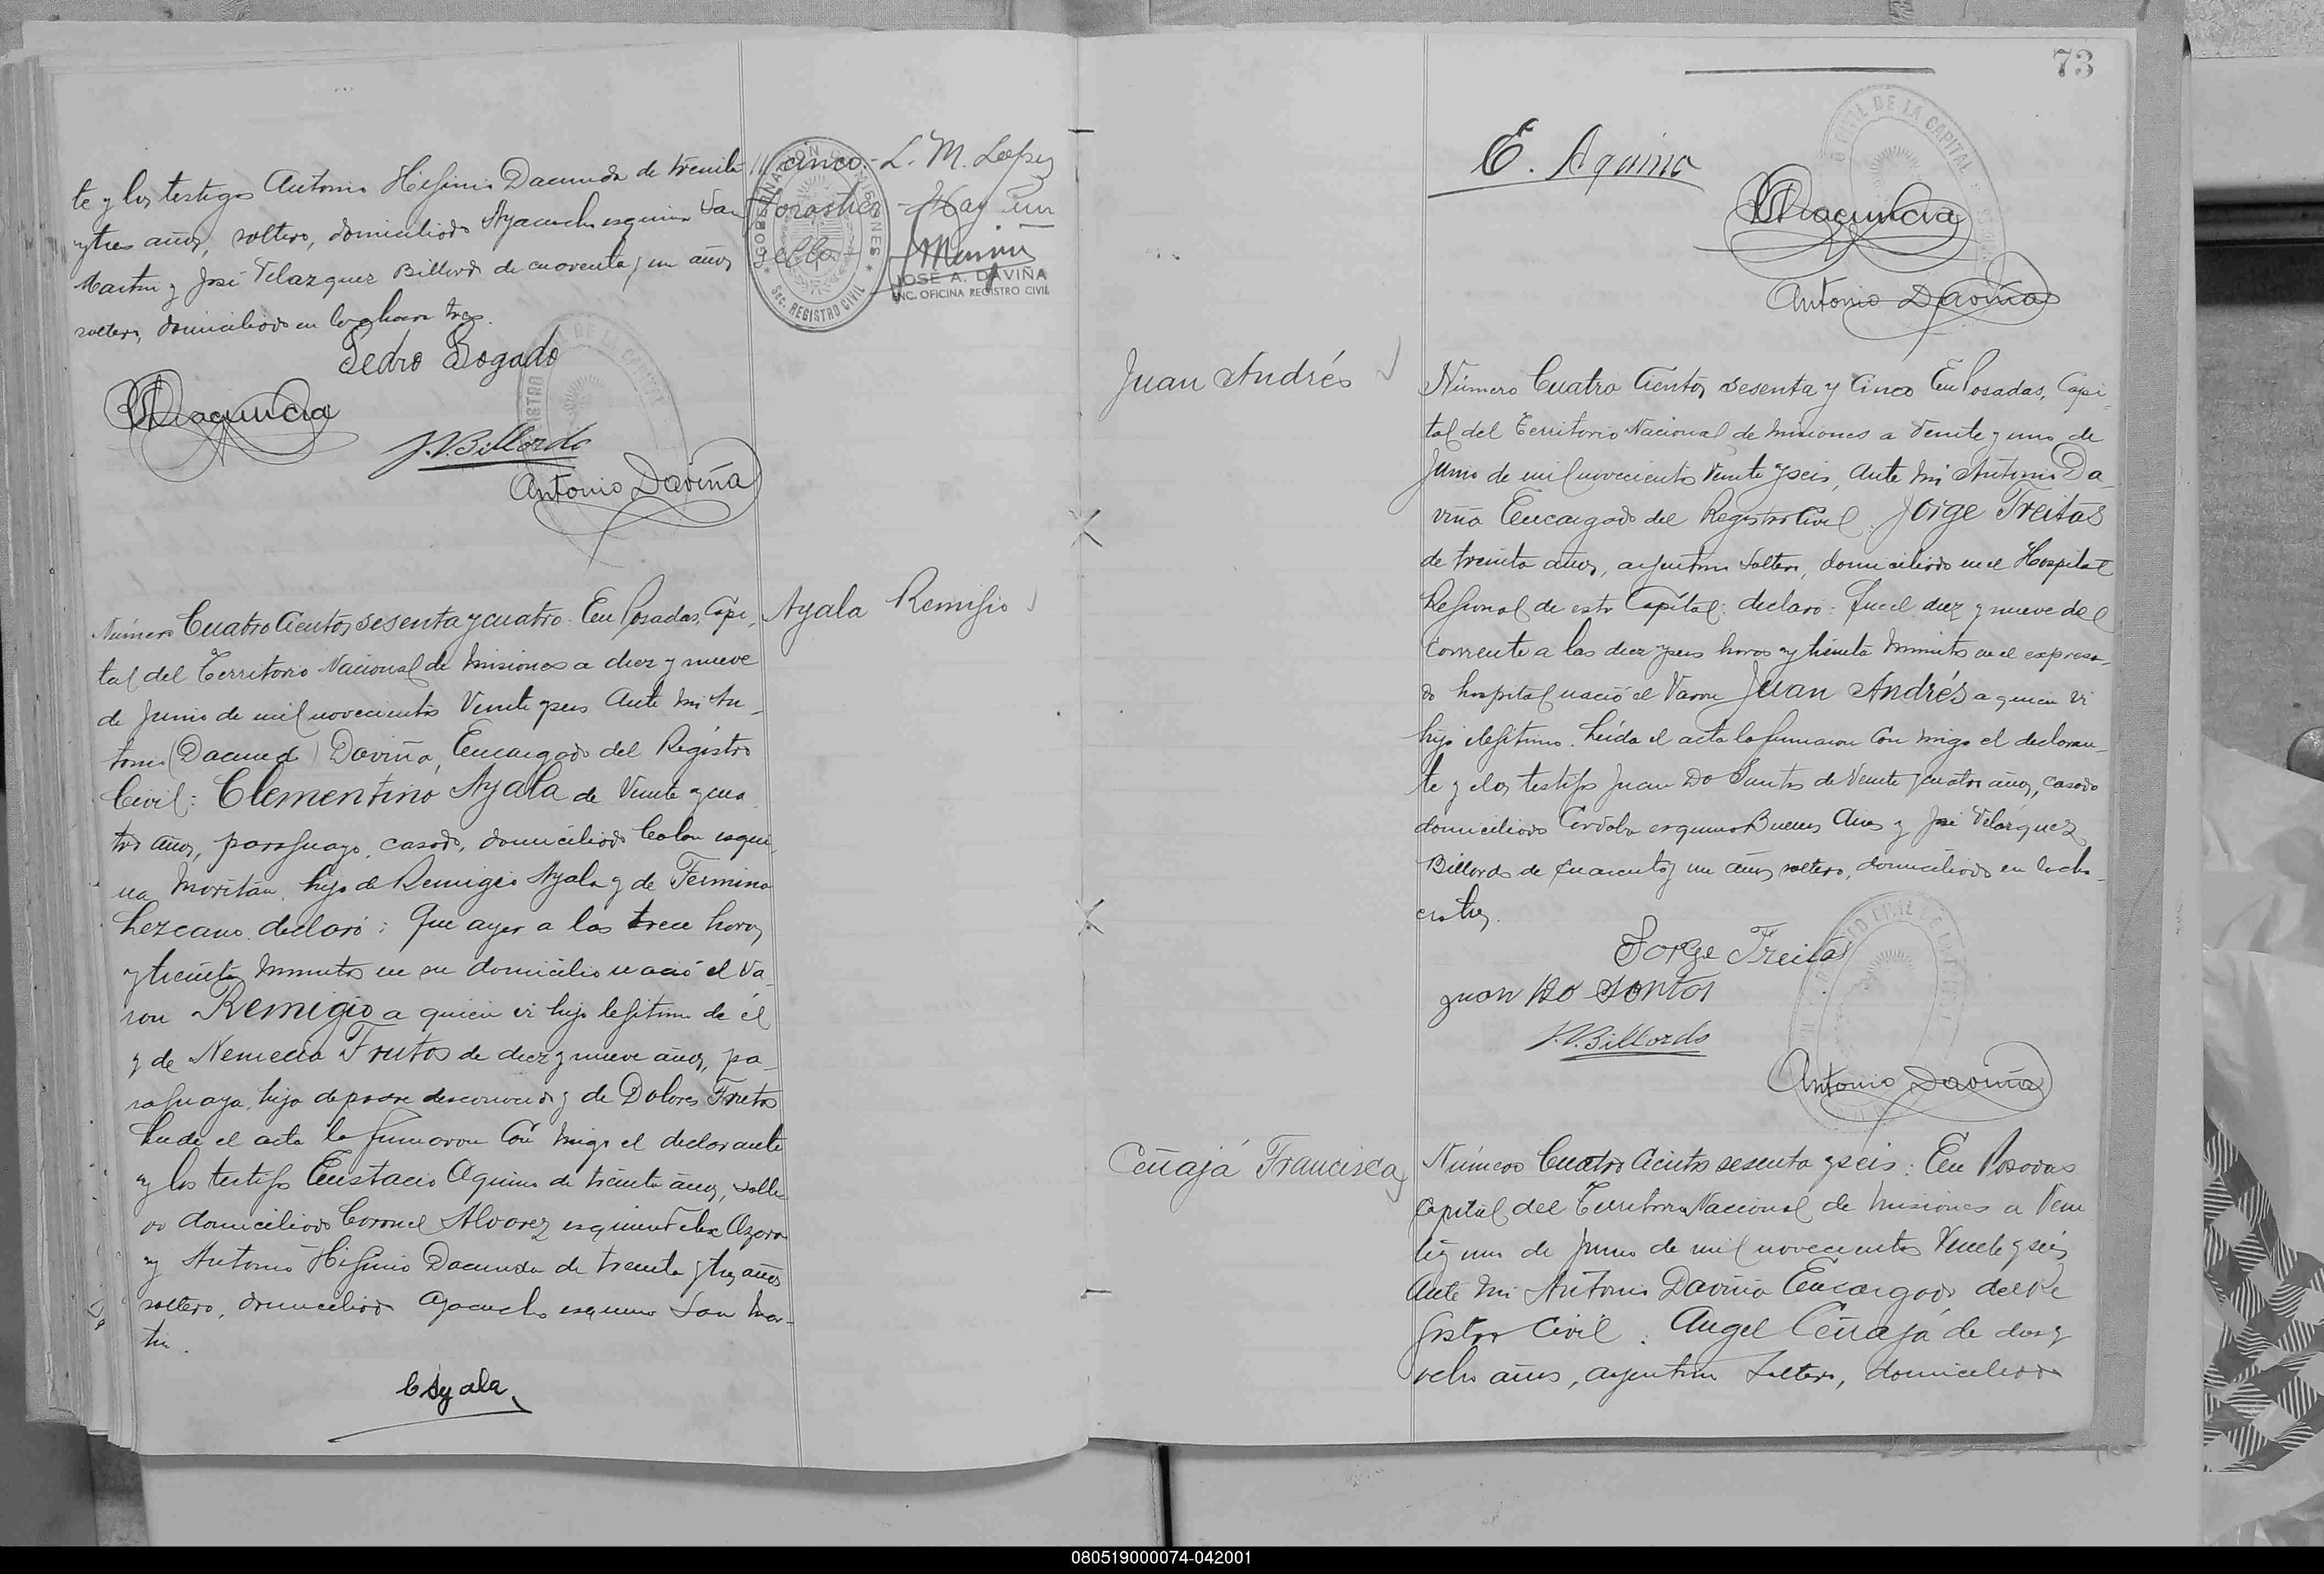 te y los testigos Antonio Higinio Dacunda de treinta
y tres años, soltero, domiciliado Ayacucho esquina San
Martin y José Velazquez Billordo de cuarenta y un años
soltero, domiciliado en la chacra tres.
Pedro Bogado
J. V. Billordo
Antonio Daviña
// cinco.- L. M. Lopez
Hay un
sello
GOBERNACION DE MISIONES
SEC. REGISTRO CIVIL
JOSE A. DAVIÑA
ENC. OFICINA REGISTRO CIVIL
Ayala Remigio
Número Cuatro Cientos sesenta y cuatro: En Posadas, Capi-
tal del Territorio Nacional de Misiones a diez y nueve
de Junio de mil novecientos veinte y seis Ante mi An-
tonio (Dacund) Daviña, Encargado del Registro
Civil: Clementino Ayala de veinte y cua
tro años, paraguayo, casado, domiciliado Colon esqui-
na Moritán, hijo de Remigio Ayala y de Fermina
Lezcano, declaró: Que ayer a las trece horas
y treinta minutos en su domicilio nació el va-
ron Remigio a quien vi hijo legitimo de él
y de Nemecia Frutos de diez y nueve años, pa-
raguaya, hija de padre desconocido y de Dolores Frutos
Leida el acta la firmaron con migo el declarante
y los testigos Eustacio Aquino de treinta años, solte-
ro domiciliado Coronel Alvarez esquina Felix Azara
y Antonio Higinio Dacunda de treinta y tres años
soltero, domiciliado Ayacucho esquina San Mar-
tin.
C Ayala
73
E. Aquino
REGISTRO CIVIL DE LA CAPITAL
Antonio Daviña
Juan Andrés
Número Cuatro Cientos sesenta y cinco En Posadas, Capi-
tal del Territorio Nacional de Misiones a veinte y uno de
Junio de mil novecientos veinte y seis, Ante mi Antonio Da-
viña Encargado del Registro Civil. Jorge Freitas
de treinta años, argentino soltero, domiciliado en el Hospital
Regional de esta Capital: declaró: Que el diez y nueve del
corriente a las diez y seis horas y treinta minutos en el expresa-
do hospital nació el varon Juan Andrés a quien vi
hijo ilegitimo. Leida el acta la firmaron con migo el declaran-
te y los testigos Juan Do Santos de veinte y cuatro años, casado
domiciliado Cordoba esquina Buenos Aires y José Velázquez
Billordo de cuarenta y un años soltero, domiciliado en la cha-
cra tres.
Jorge Freitas
Juan Do Santos
J. V. Billordo
Antonio Daviña
Ceñajá Francisca
Número Cuatro Cientos sesenta y seis: En Posadas
Capital del Territorio Nacional de Misiones a Vein
tiy uno de Junio de mil novecientos veinte y seis
Ante mi Antonio Daviña Encargado del Re
gistro Civil: Angel Ceñajá de diez y
ocho años, argentino soltero, domiciliado
080519000074-042001